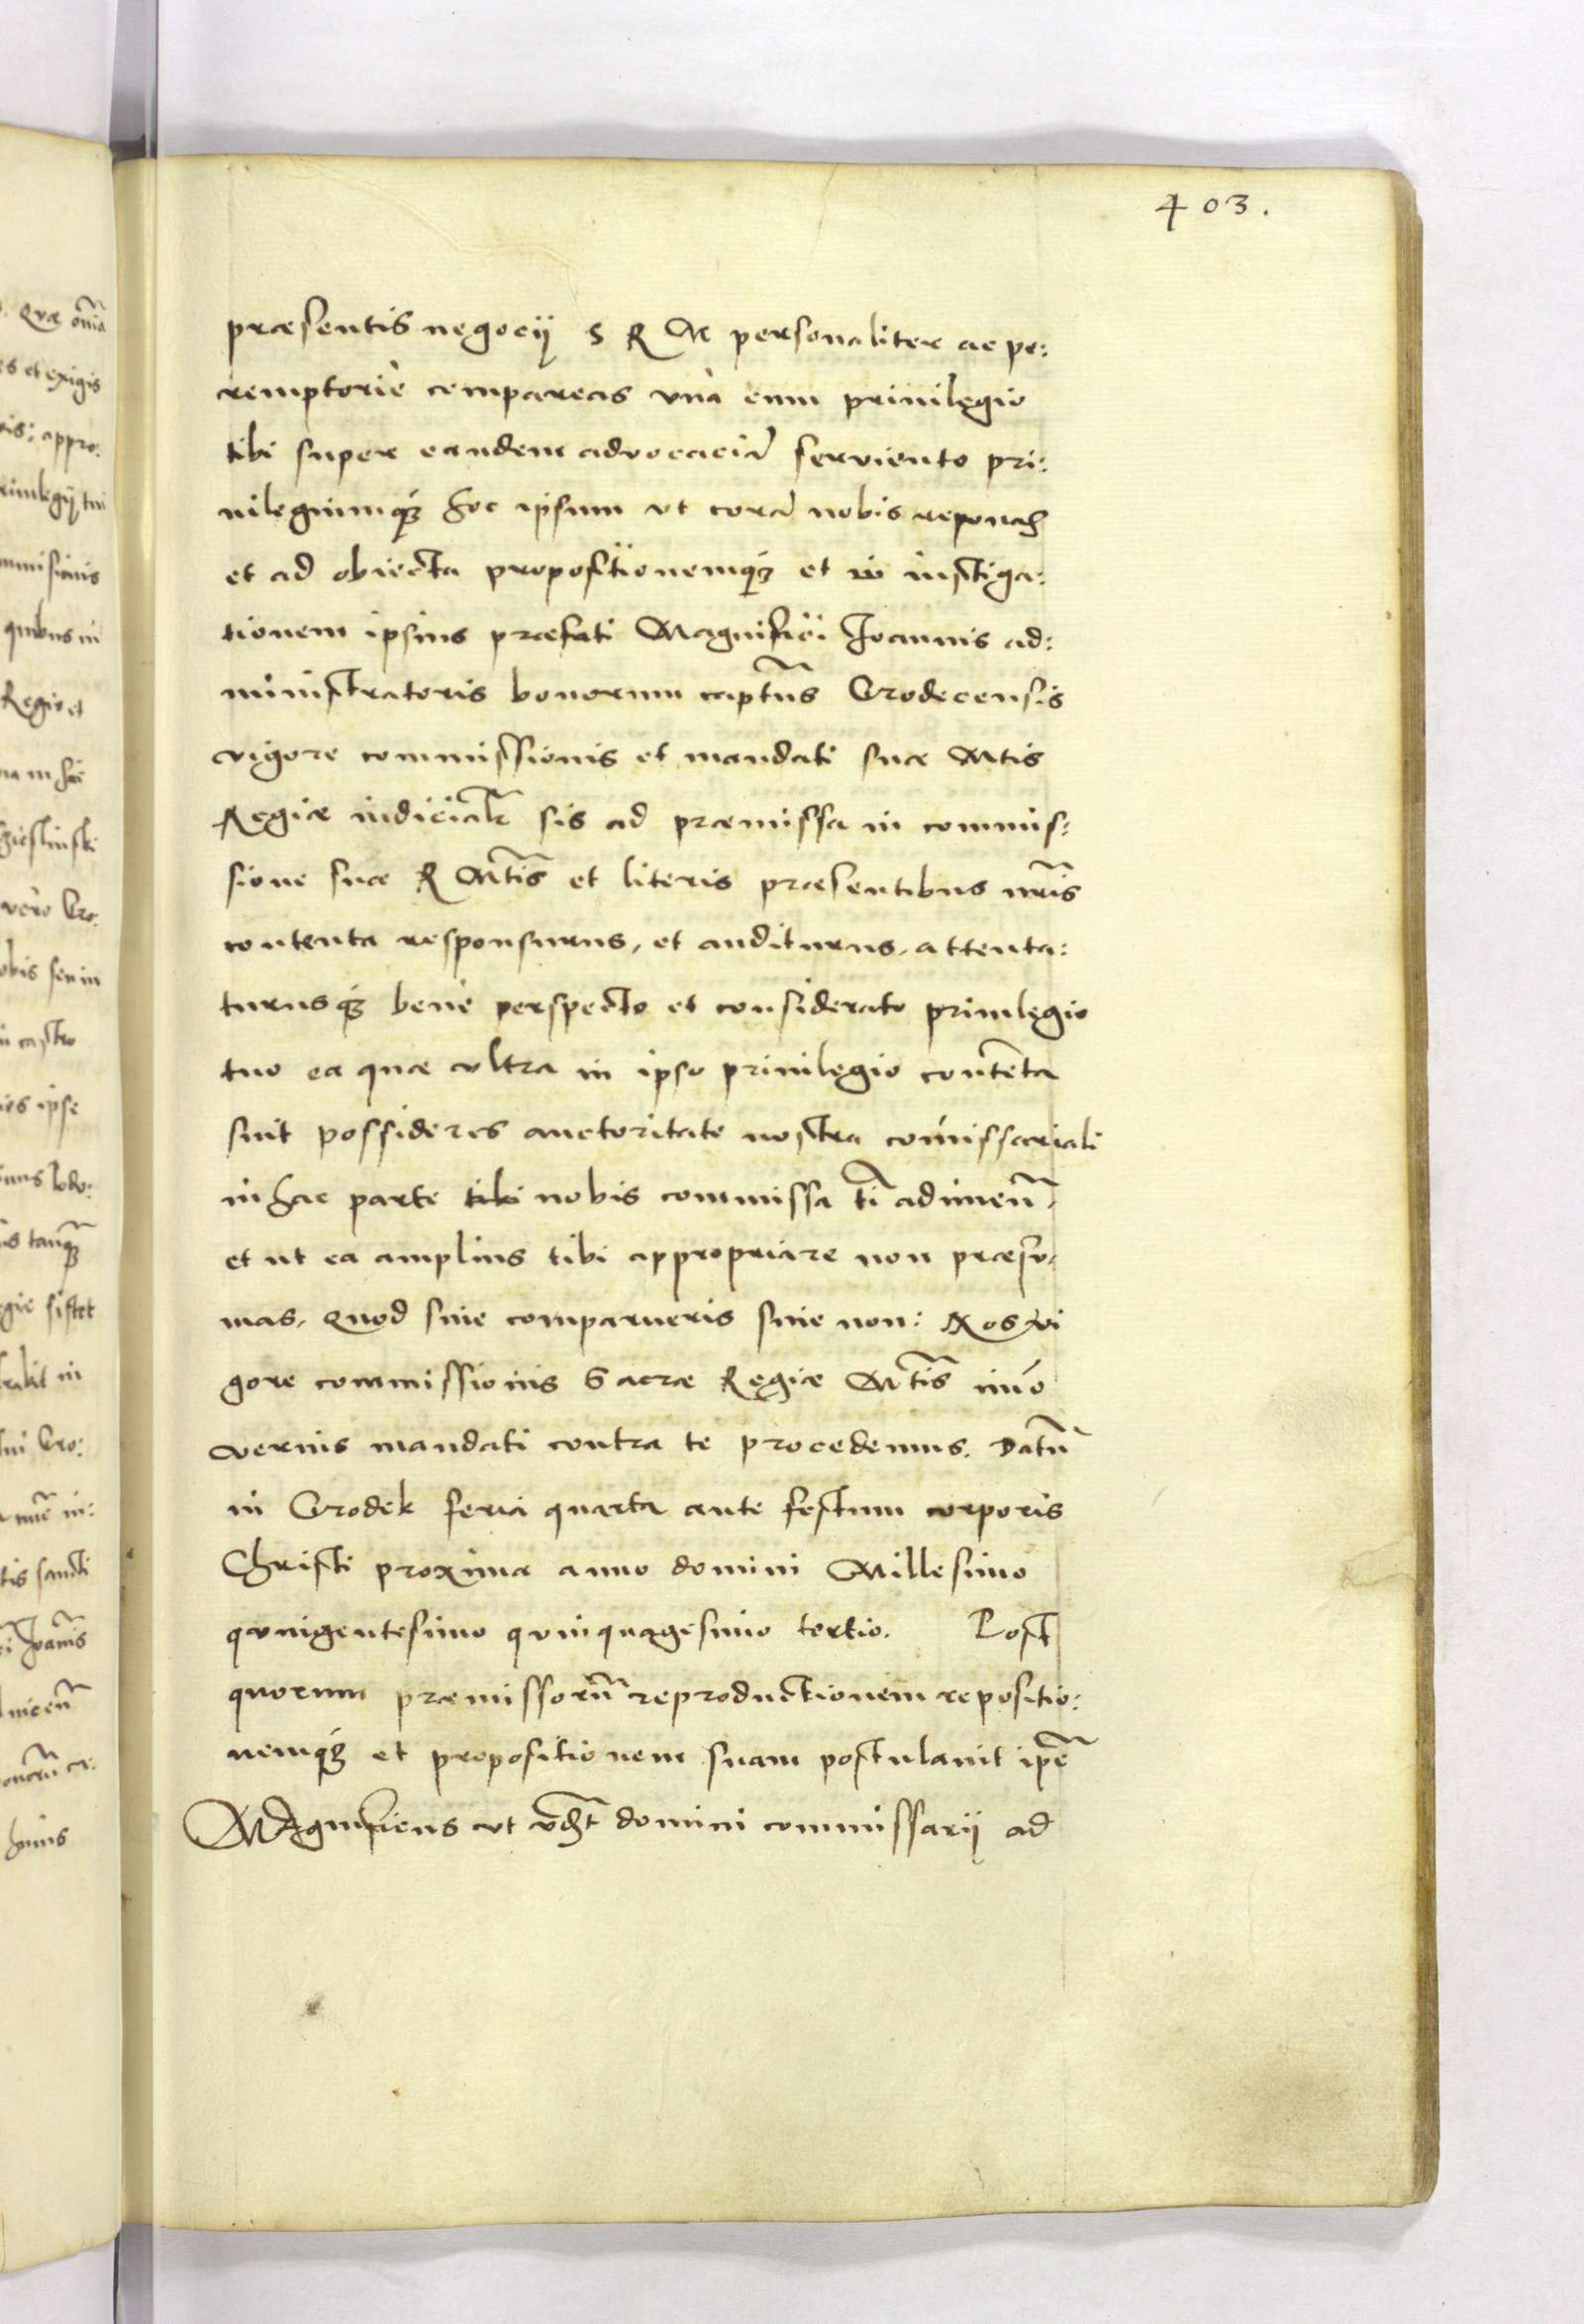 403.
præsentis negocij S R M personaliter ac pe:
remptoriè compareas vnà cum priuilegio
tibi super eandem advocaciã serviente pri:
uilegiumq́ꝫ hoc ipsum vt corã nobis reponas
et ad obiecta propositionemq́ꝫ et instiga:
tionem ipsius præfati Magnifici Joannis ad:
ministratoris bonorum capitñs Grodecensis
vigore commissionis et mandati suæ Mtis
Regiæ iudicialr̃ sis ad præmissa in commis:
sione suæ R Mtis̃ et literis præsentibus nr̃is
contenta responsurus, et auditurus, attenta:
turusq́ꝫ benè perspecto et considerato priuilegio
tuo ea quæ vltra in ipso priuilegio contẽta
sint possideres auctoritate nostra com̃issariali
in hac parte nobis commissa tĩ adimen̑,
et ut ea amplius tibi appropriare non præsu,
mas, Quod siue comparueris siue non: Nos vi
gore commissionis Sacræ Regiæ Mtis̃ imò
verius mandati contra te procedemus. Datũ
in Grodek feria quarta ante festum corporis
Christi proxima anno domini Millesimo
quingentesimo quinquagesimo tertio. Post
quorum præmissorũ reproductionem repositio:
nemq́ꝫ et propositionem suam postulauit ipẽ
Magnificus vt domini commissarij ad
Quæ om̃ia
et exigis
appro:
quibus in
Regiæ et
castro
ipse
tanq̃ꝫ
sistet
Gro:
sancti
Joañis
huius